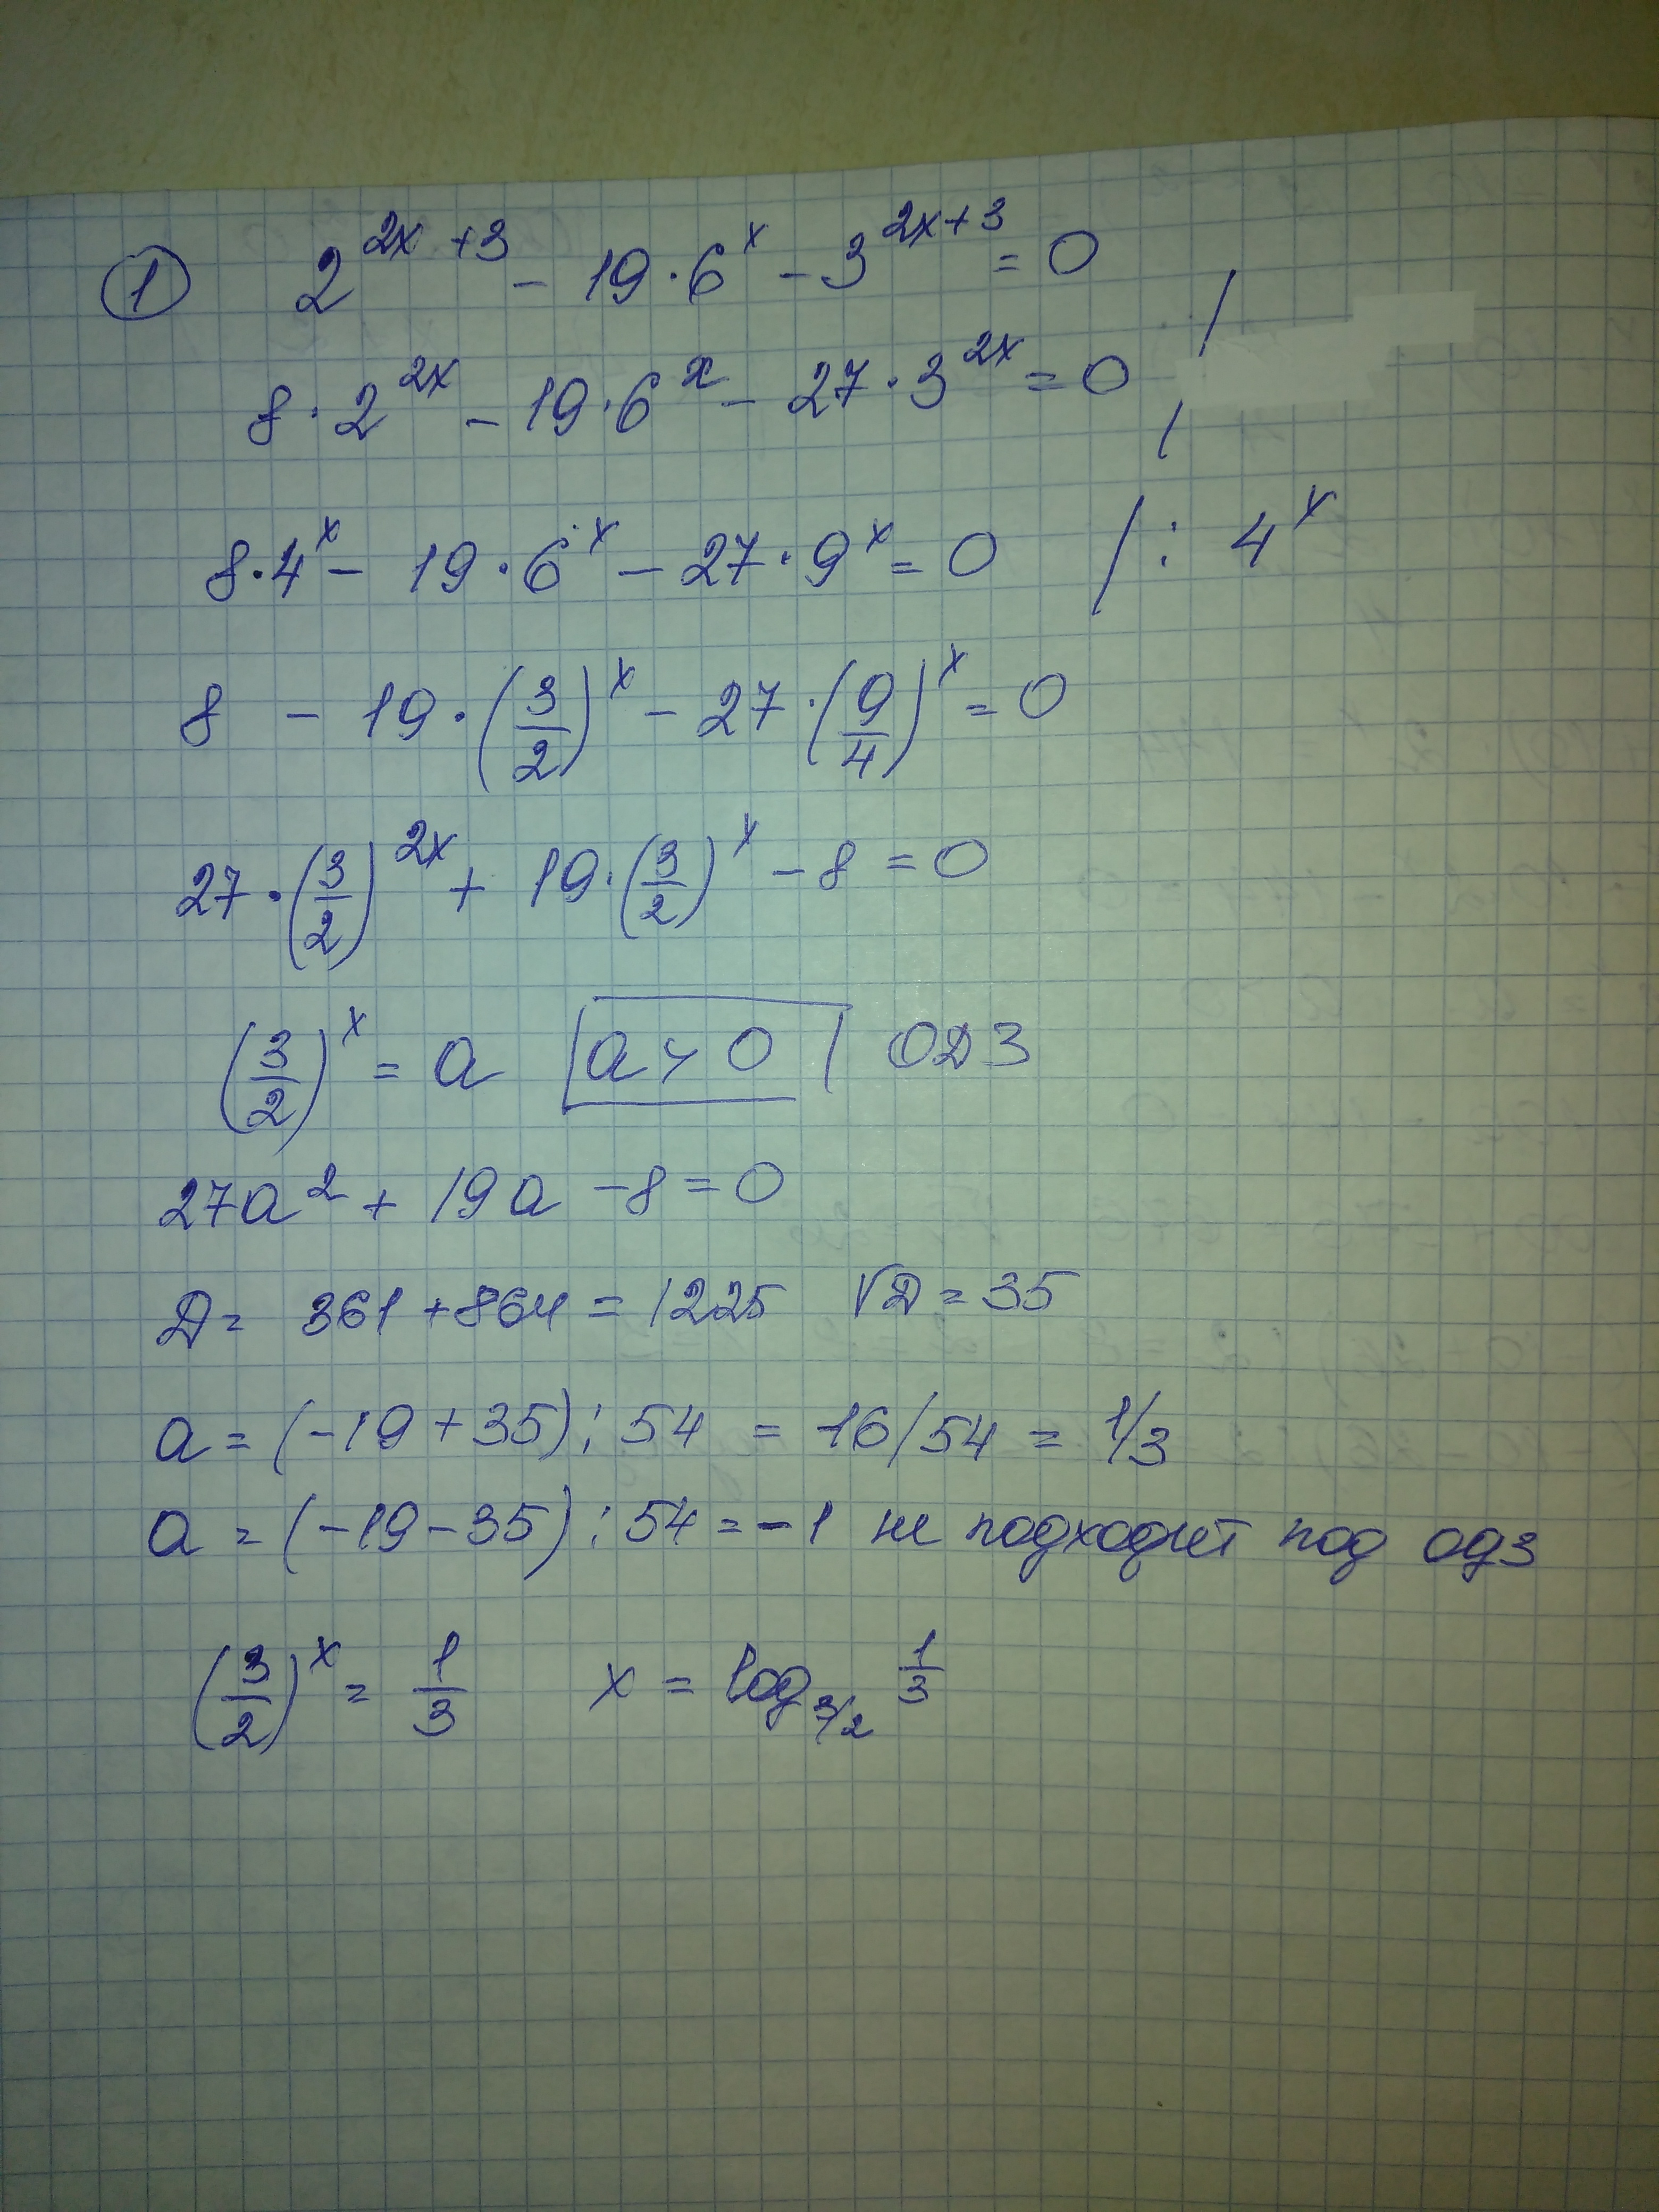 ① 2^(2x+3) - 19·6^x - 3^(2x+3) = 0 /
8·2^(2x) - 19·6^x - 27·3^(2x) = 0 /
8·4^x - 19·6^x - 27·9^x = 0 /: 4^x
8 - 19·(3/2)^x - 27·(9/4)^x = 0
27·(3/2)^(2x) + 19·(3/2)^x - 8 = 0
(3/2)^x = a a > 0 ОДЗ
27a² + 19a - 8 = 0
Д = 361 + 864 = 1225 √Д = 35
a = (-19 + 35) : 54 = 16/54 = 1/3
a = (-19 - 35) : 54 = -1 не подходит под одз
(3/2)^x = 1/3 x = log_(3/2) 1/3